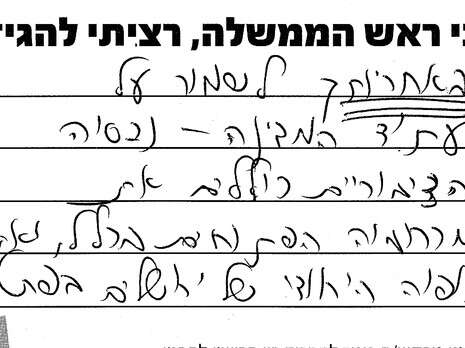 ני ראש הממשלה, רציתי להגי
באחריותך לשמור על
עתיד המדינה – נכסיה
הציבוריים כוללים את
מרחביה הפתוחים בכלל, ואת
נופה היחודי של ירושלים בפרט